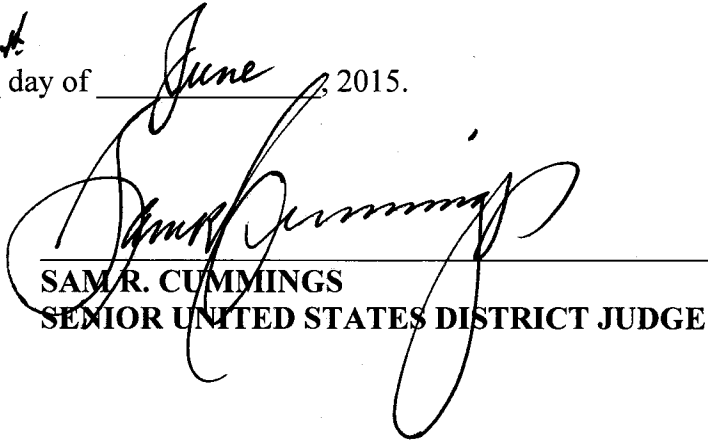 day of June, 2015.
Sam R Cummings
SAM R. CUMMINGS
SENIOR UNITED STATES DISTRICT JUDGE